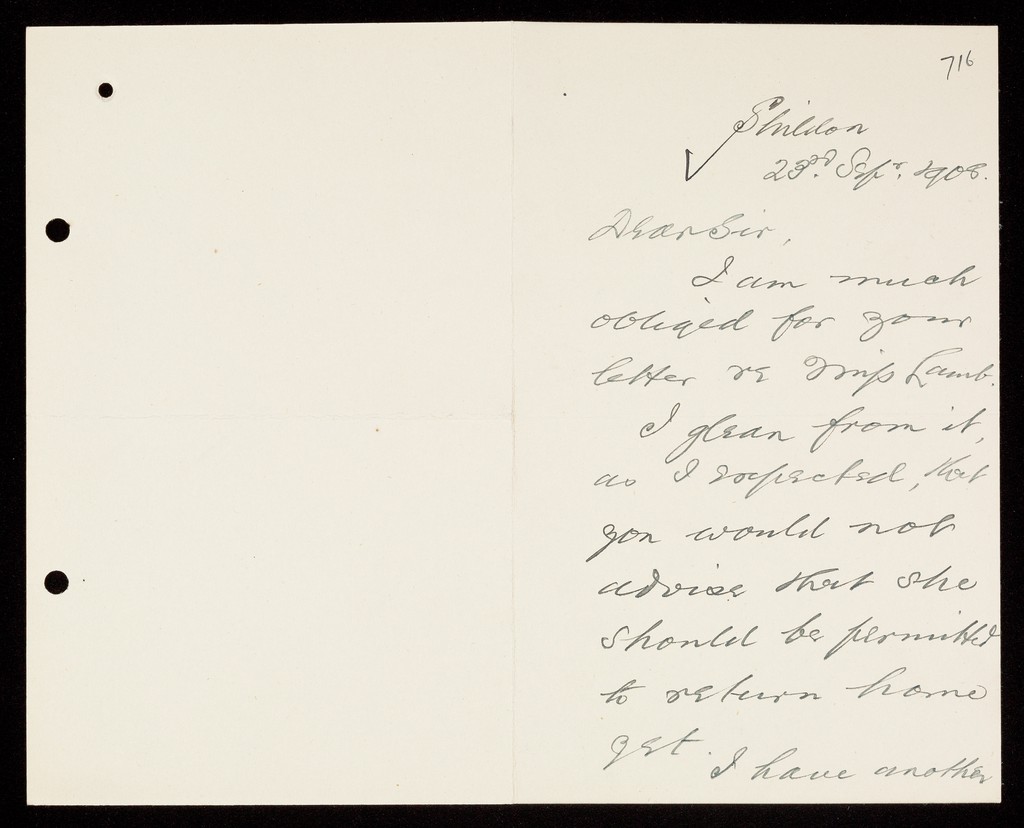 716
Shildon
23rd Sepr. 1908.
Dear Sir,
I am much
obliged for your
letter re Miss Lamb.
I glean from it,
as I expected, that
you would not
advise that she
should be permitted
to return home
yet.
I have another